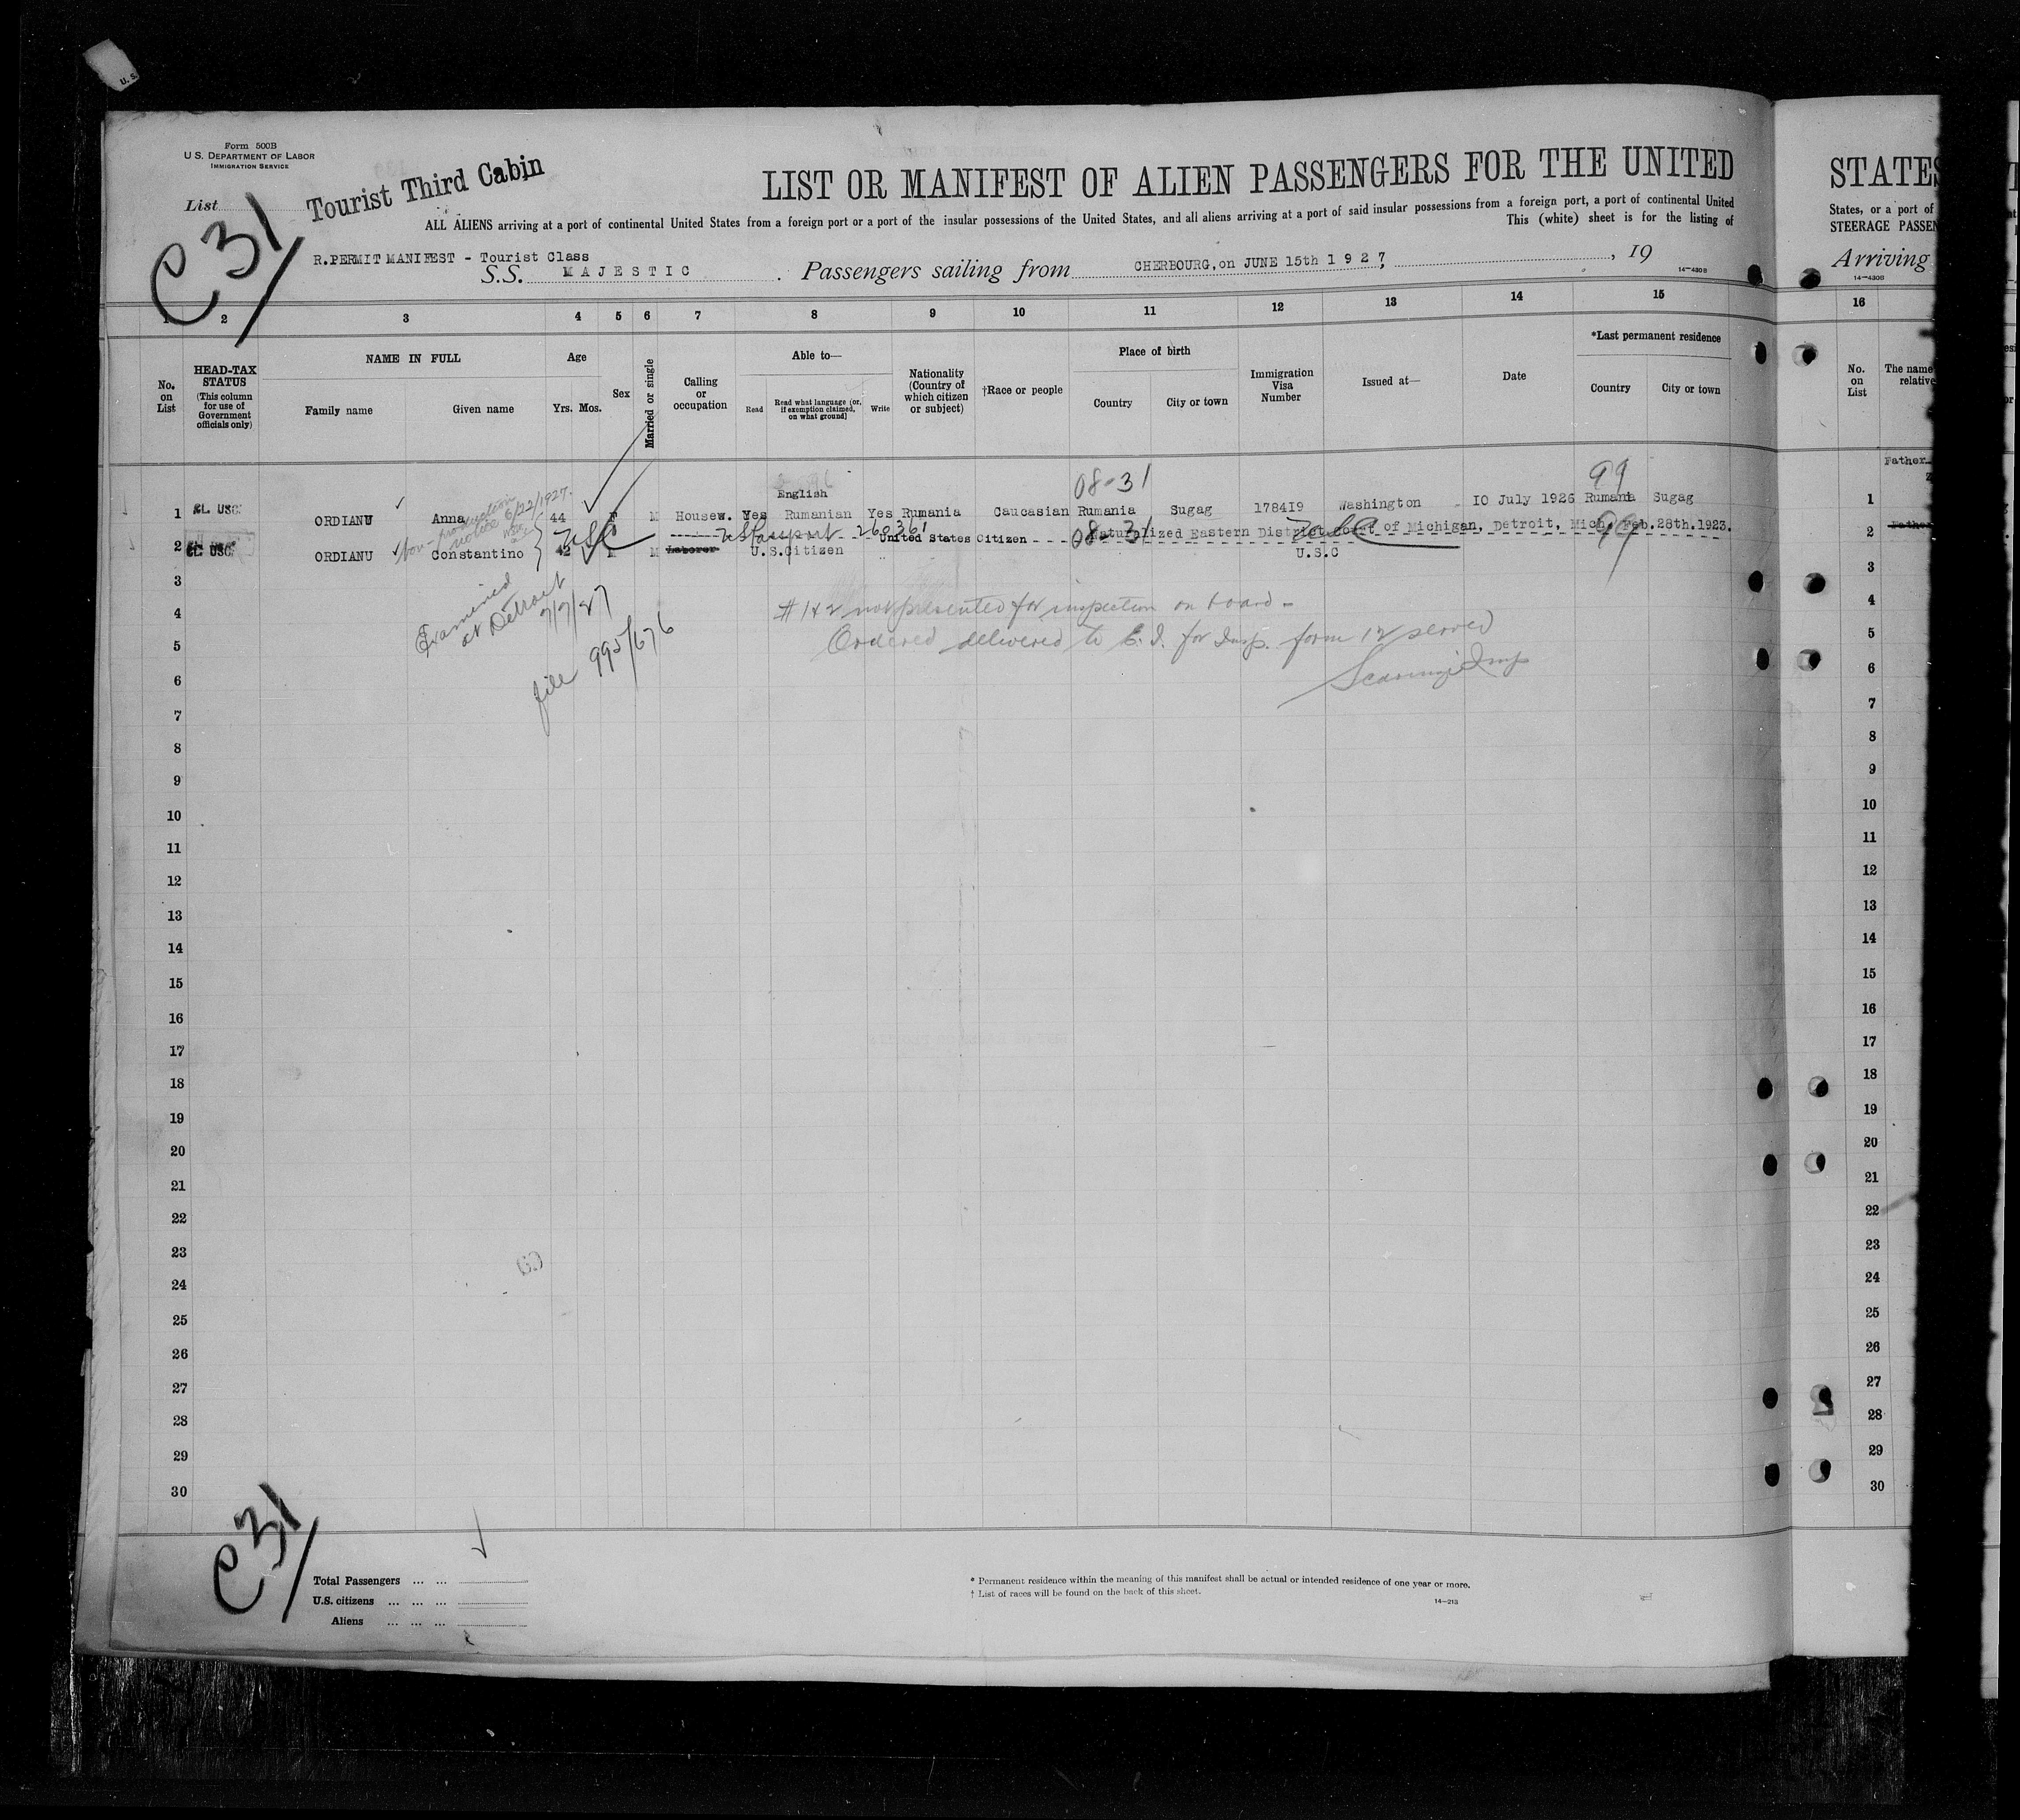 U. S.
Form 500B
U S. DEPARTMENT OF LABOR
IMMIGRATION SERVICE
List
Tourist Third Cabin
C31
LIST OR MANIFEST OF ALIEN PASSENGERS FOR THE UNITED
ALL ALIENS arriving at a port of continental United States from a foreign port or a port of the insular possessions of the United States, and all aliens arriving at a port of said insular possessions from a foreign port, a port of continental United
This (white) sheet is for the listing of
R.PERMIT MANIFEST - Tourist Class
S.S. MAJESTIC . Passengers sailing from CHERBOURG, on JUNE 15th 1 9 2 7, , 19
14—430B
STATES
States, or a port of
STEERAGE PASSEN
Arriving
14—430B
1 2 3 4 5 6 7 8 9 10 11 12 13 14 15 16
No. on List
HEAD-TAX STATUS (This column for use of Government officials only)
NAME IN FULL
Family name Given name
Age
Yrs. Mos.
Sex
Married or single
Calling or occupation
Able to—
Read Read what language (or, if exemption claimed, on what ground) Write
Nationality (Country of which citizen or subject)
†Race or people
Place of birth
Country City or town
Immigration Visa Number
Issued at—
Date
*Last permanent residence
Country City or town
No. on List
The name
relative
Father
08-31 99
1 USC ORDIANU Anna 44 F M Housew. Yes English Rumanian Yes Rumania Caucasian Rumania Sugag 178419 Washington 10 July 1926 Rumania Sugag 1
non-production notice 6/22/1927.
USC
US Passport 260361 United States Citizen 08-31 Naturalized Eastern District Court of Michigan, Detroit, Mich. Feb.28th.1923. 99
2 USC ORDIANU Constantino 42 M M Laborer U.S.Citizen U.S.C 2 Father
Examined
at Detroit
7/7/27
file 995/676
#1&2 not presented for inspection on board -
Ordered delivered to E.I. for Insp. form 12 served
Insp
3 3
4 4
5 5
6 6
7 7
8 8
9 9
10 10
11 11
12 12
13 13
14 14
15 15
16 16
17 17
18 18
19 19
20 20
21 21
22 22
23 23
24 24
25 25
26 26
27 27
28 28
29 29
30 30
C31
Total Passengers ... ...
U.S. citizens ... ... ...
Aliens ... ... ...
* Permanent residence within the meaning of this manifest shall be actual or intended residence of one year or more.
† List of races will be found on the back of this sheet.
14—213